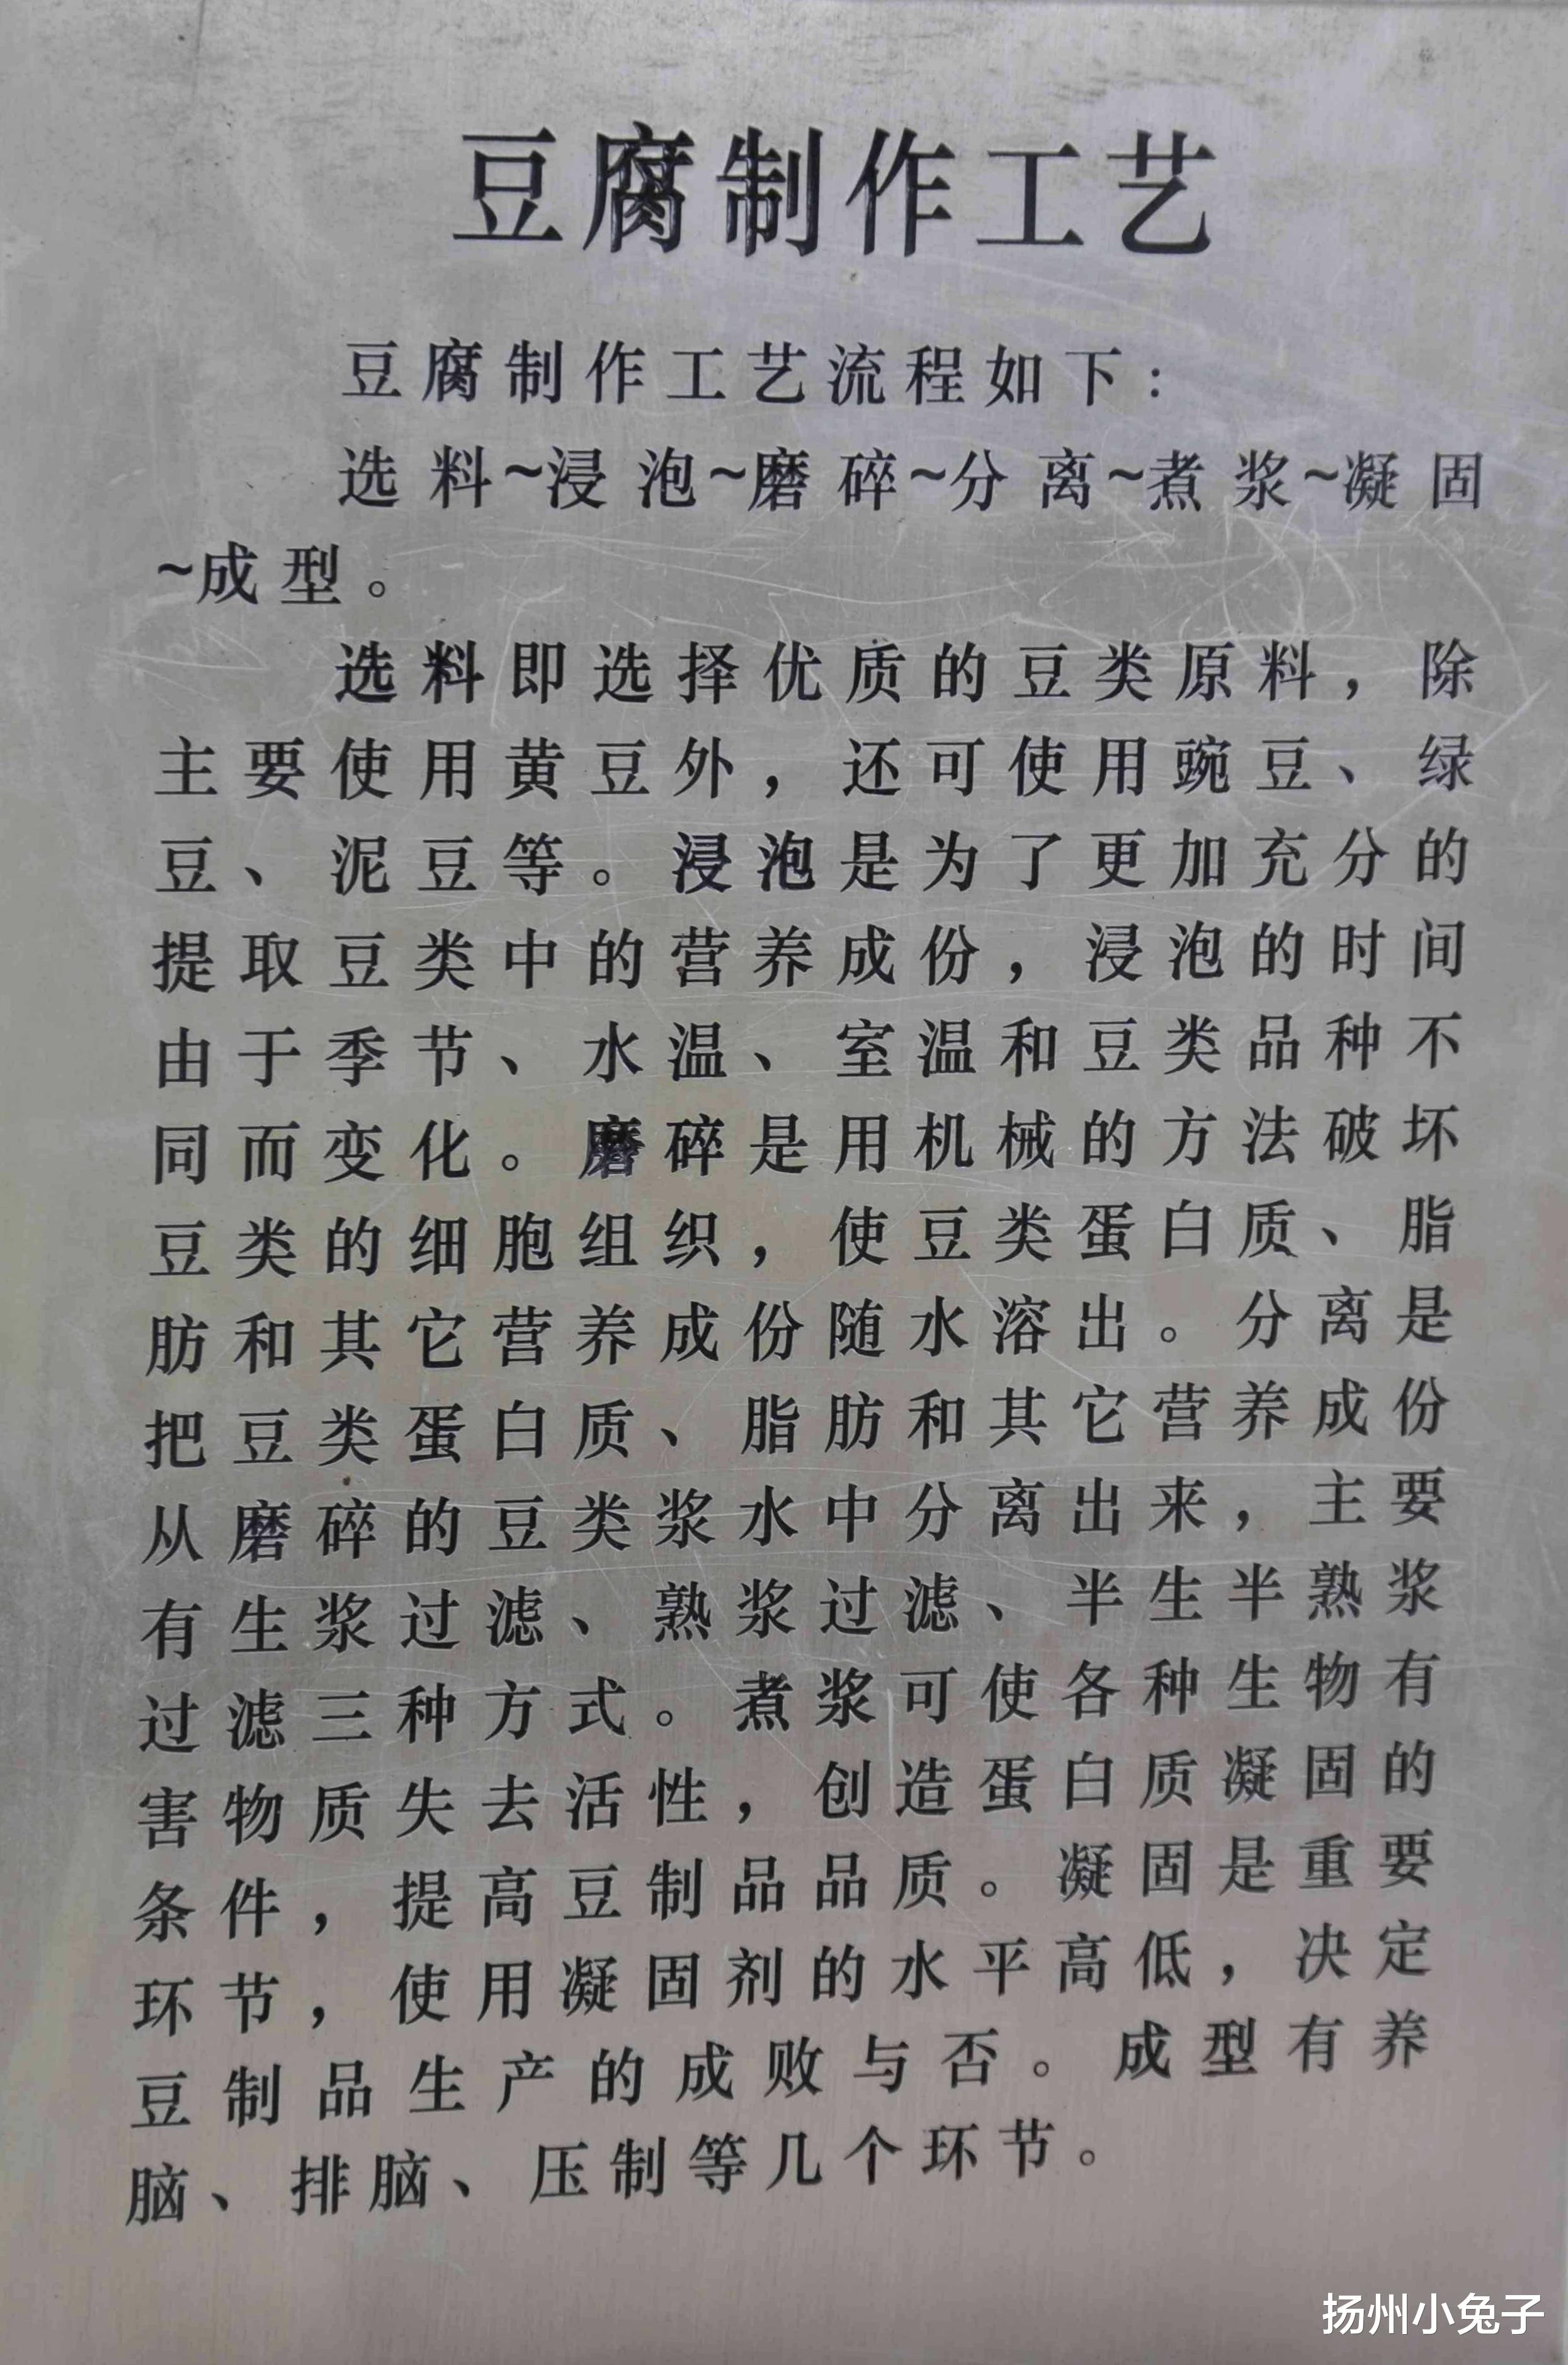 豆腐制作工艺
豆腐制作工艺流程如下：
选料~浸泡~磨碎~分离~煮浆~凝固
~成型。
选料即选择优质的豆类原料，除
主要使用黄豆外，还可使用豌豆、绿
豆、泥豆等。浸泡是为了更加充分的
提取豆类中的营养成份，浸泡的时间
由于季节、水温、室温和豆类品种不
同而变化。磨碎是用机械的方法破坏
豆类的细胞组织，使豆类蛋白质、脂
肪和其它营养成份随水溶出。分离是
把豆类蛋白质、脂肪和其它营养成份
从磨碎的豆类浆水中分离出来，主要
有生浆过滤、熟浆过滤、半生半熟浆
过滤三种方式。煮浆可使各种生物有
害物质失去活性，创造蛋白质凝固的
条件，提高豆制品品质。凝固是重要
环节，使用凝固剂的水平高低，决定
豆制品生产的成败与否。成型有养
脑、排脑、压制等几个环节。
扬州小兔子